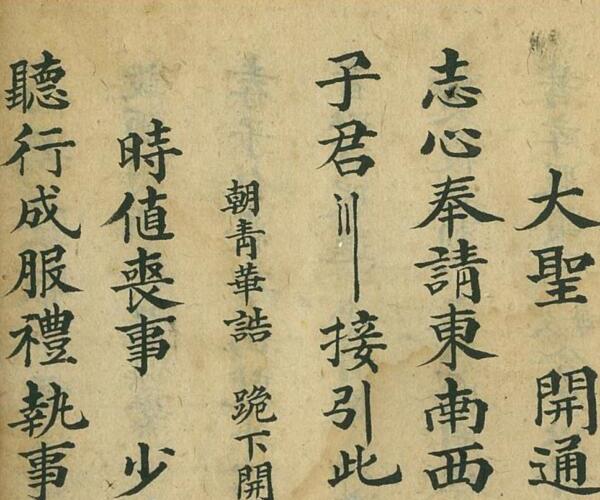 大聖 開通
志心奉請東南西
子君 接引此
朝青華誥 跪下開
時值喪事 少
聽行成服禮執事